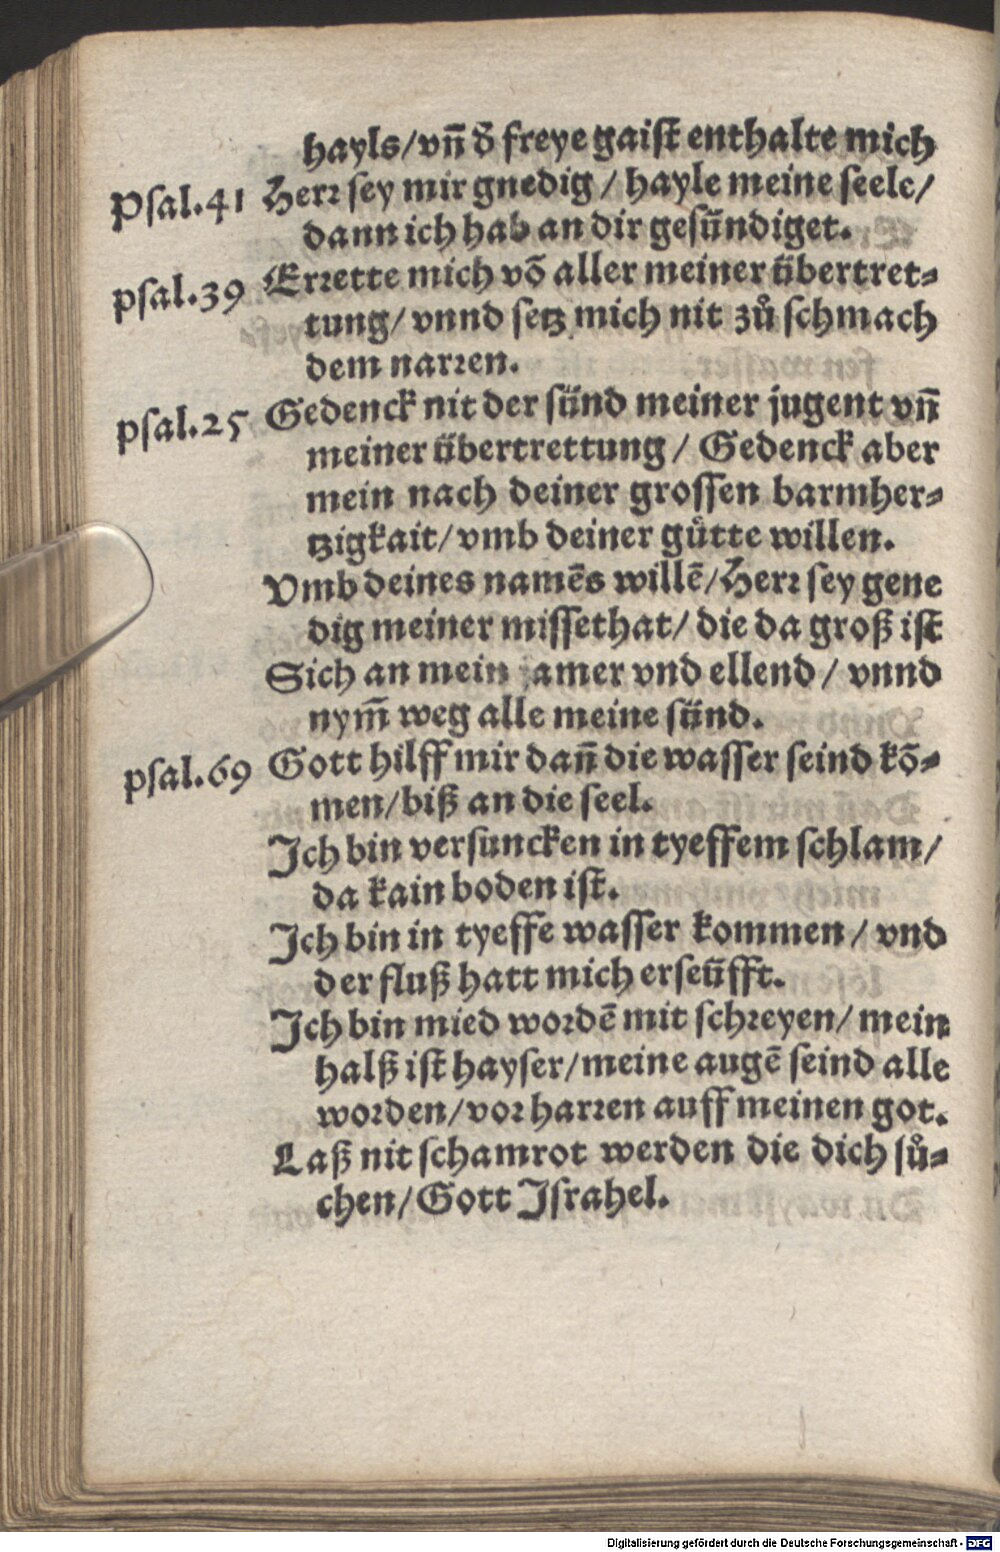 hayls/vn̄ d̄ freye gaist enthalte mich
Psal.41 Herr sey mir gnedig / hayle meine seele/
dann ich hab an dir gesündiget.
psal.39 Errette mich võ aller meiner übertret-
tung/ vnnd setz mich nit zů schmach
dem narren.
psal.25 Gedenck nit der sünd meiner jugent vn̄
meiner übertrettung / Gedenck aber
mein nach deiner grossen barmher-
tzigkait/vmb deiner gůtte willen.
Vmb deines namēs willē/Herr sey gene
dig meiner missethat/ die da groß ist
Sich an mein jamer vnd ellend / vnnd
nym̄ weg alle meine sünd.
psal.69 Gott hilff mir dan̄ die wasser seind kõ-
men/biß an die seel.
Ich bin versuncken in tyeffem schlam/
da kain boden ist.
Ich bin in tyeffe wasser kommen / vnd
der fluß hatt mich erseüfft.
Ich bin mied wordē mit schreyen/ mein
halß ist hayser/meine augē seind alle
worden/vor harren auff meinen got.
Laß nit schamrot werden die dich sů-
chen/Gott Israhel.
Digitalisierung gefördert durch die Deutsche Forschungsgemeinschaft - DFG